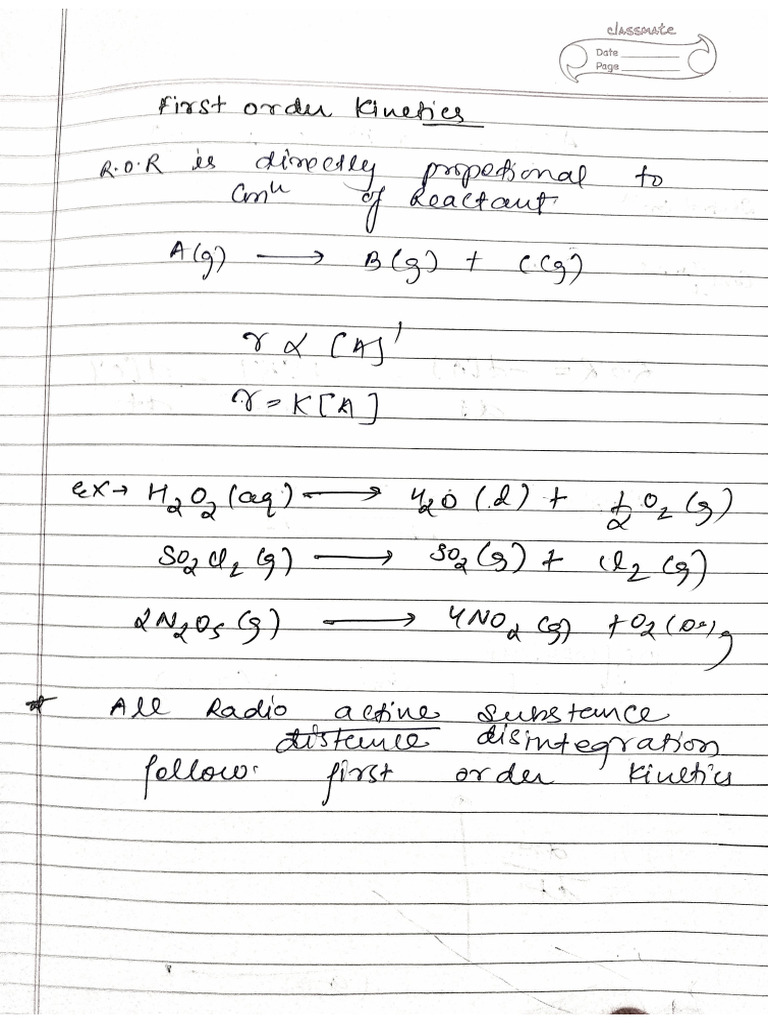 classmate
Date
Page
First order Kinetics
R.O.R is directly propetional to
Cmⁿ of Reactant
A(g) ⟶ B(g) + C(g)
r ∝ [A]¹
r = K[A]
ex → H₂O₂(aq) ⟶ H₂O(l) + ½ O₂(g)
SO₂Cl₂(g) ⟶ SO₂(g) + Cl₂(g)
2N₂O₅(g) ⟶ 4NO₂(g) + O₂(g)
* All Radio active Substance
distance disintegration
follow first order Kinetics